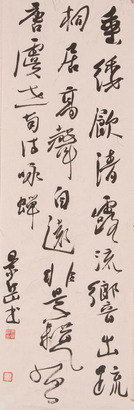 垂緌饮清露流響音出疏
桐居高聲自遠非是藉秋風
唐虞世南诗咏蝉
景岳书